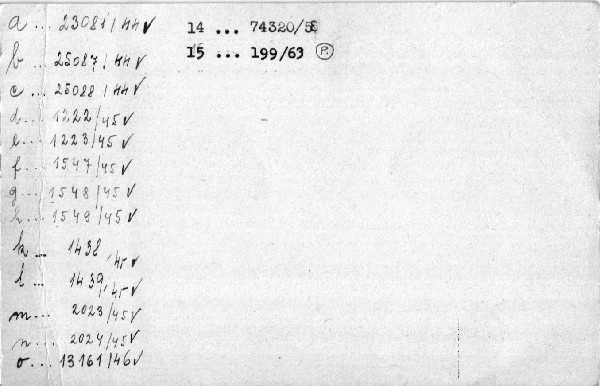 a ... 23081/44 √
b ... 25087/44 √
c ... 25088/44 √
d ... 1222/45 √
e ... 1223/45 √
f ... 1547/45 √
g ... 1548/45 √
h ... 1549/45 √
k ... 1438/45 √
l ... 1439/45 √
m ... 2023/45 √
n ... 2024/45 √
o ... 13161/46 √
14 ... 74320/58
15 ... 199/63 P.